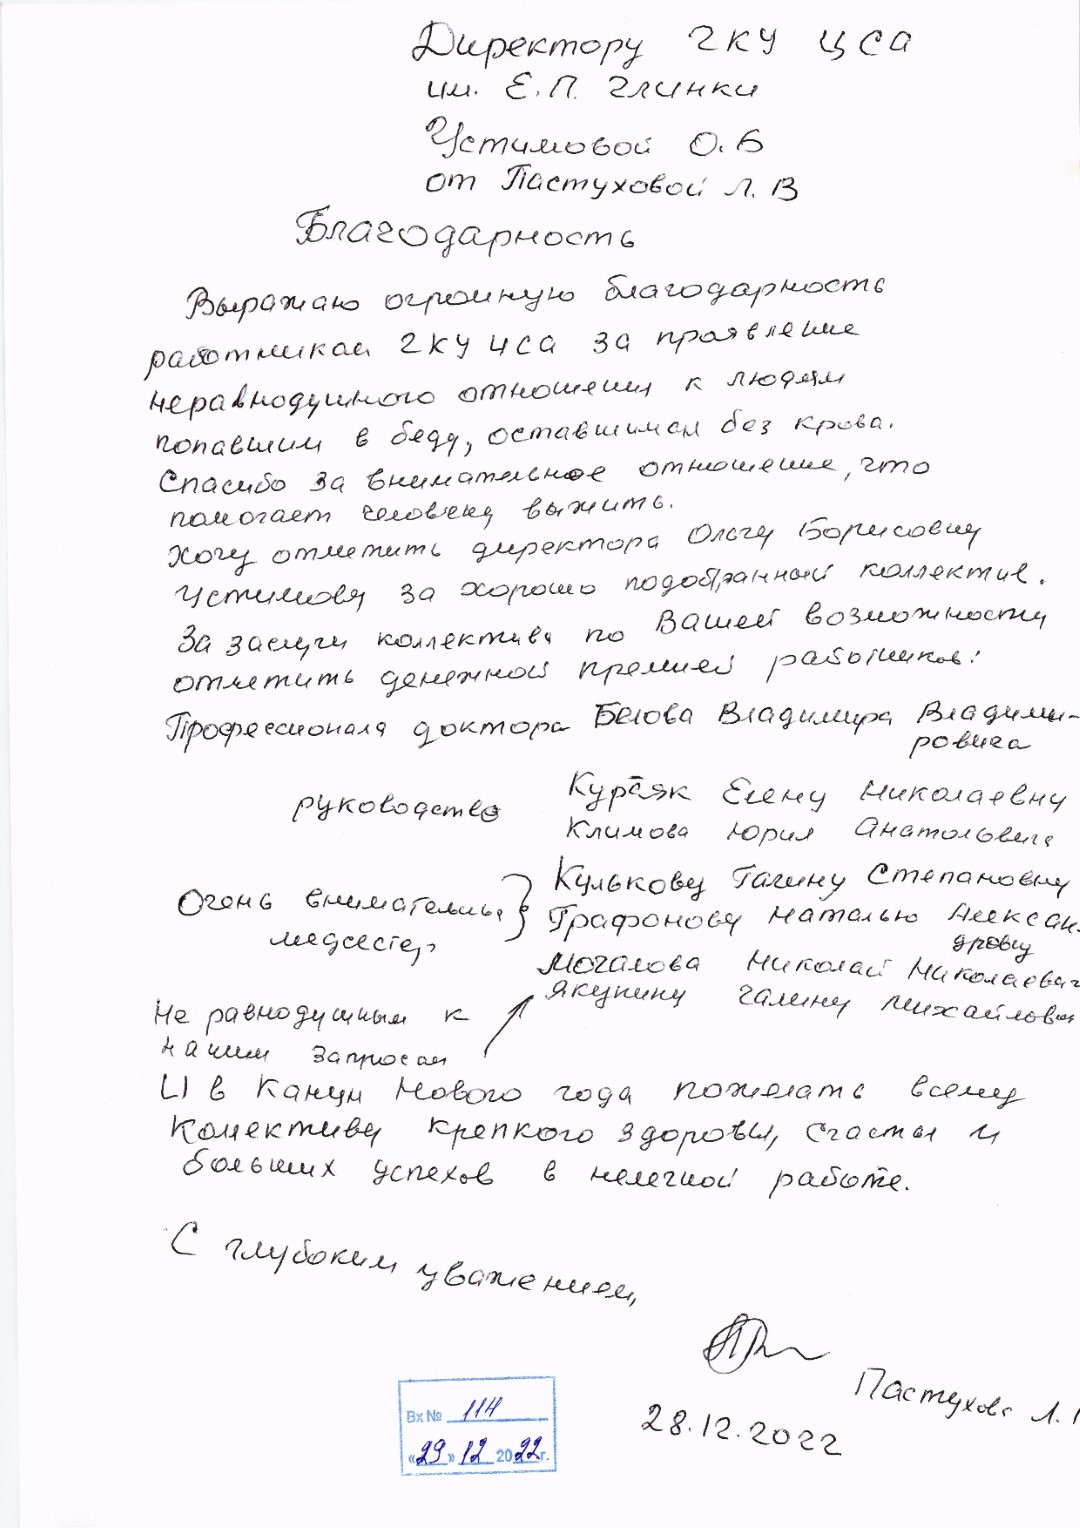 Директору ГКУ ЦСА
им. Е.П. Глинки
Устимовой О.Б
от Пастуховой Л.В
Благодарность
Выражаю огромную благодарность
работникам ГКУ ЦСА за проявление
неравнодушного отношения к людям
попавшим в беду, оставшимся без крова.
Спасибо за внимательное отношение, что
помогает человеку выжить.
Хочу отметить директора Ольгу Борисовну
Устимову за хорошо подобранный коллектив.
За заслуги коллектива по Вашей возможности
отметить денежной премией работников:
Профессионала доктора Белова Владимира Владими-
ровича
руководство
Елену Николаевну
Климова Юрия Анатольевича
Очень внимательных
медсестер
Кулькову Галину Степановну
Графонову Наталью Алексан-
дровну
Мочалова Николай Николаевич
Якунину Галину Михайловну
Не равнодушным к
нашим запросам
И в Канун Нового года пожелать всему
Колективу крепкого здоровья, счастья и
больших успехов в нелегкой работе.
С глубоким уважением,
Пастухова Л.
28.12.2022
Вх № 114
«29» 12 2022г.